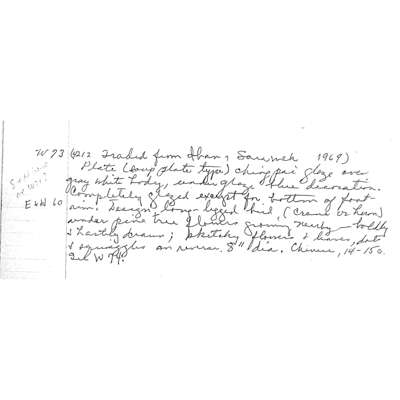 W 73 (#212 Traded from Iban, Sarawak 1969)
Plate (soup plate type) ching pai glaze over
gray white body, under glaze blue decoration.
Completely glazed except for bottom of foot
E&W 60
rim. Design long-legged bird, (crane or heron)
under pine tree flowers growing nearby - boldly
& hastily drawn; sketchy flowers & leaves, dots
& squiggles on reverse. 8" dia. Chinese, 14-15c.
See W 74.